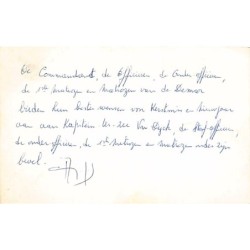 De Commandant, de Officieren, de Onder officieren,
de 1ste Matrozen en Matrozen van de
bieden hun beste wensen van Kerstmis en Nieuwjaar
aan aan Kapitein ter-zee Van Dyck, de Hoofdofficieren,
de onder officieren, de 1ste Matrozen en Matrozen onder zijn
bevel.